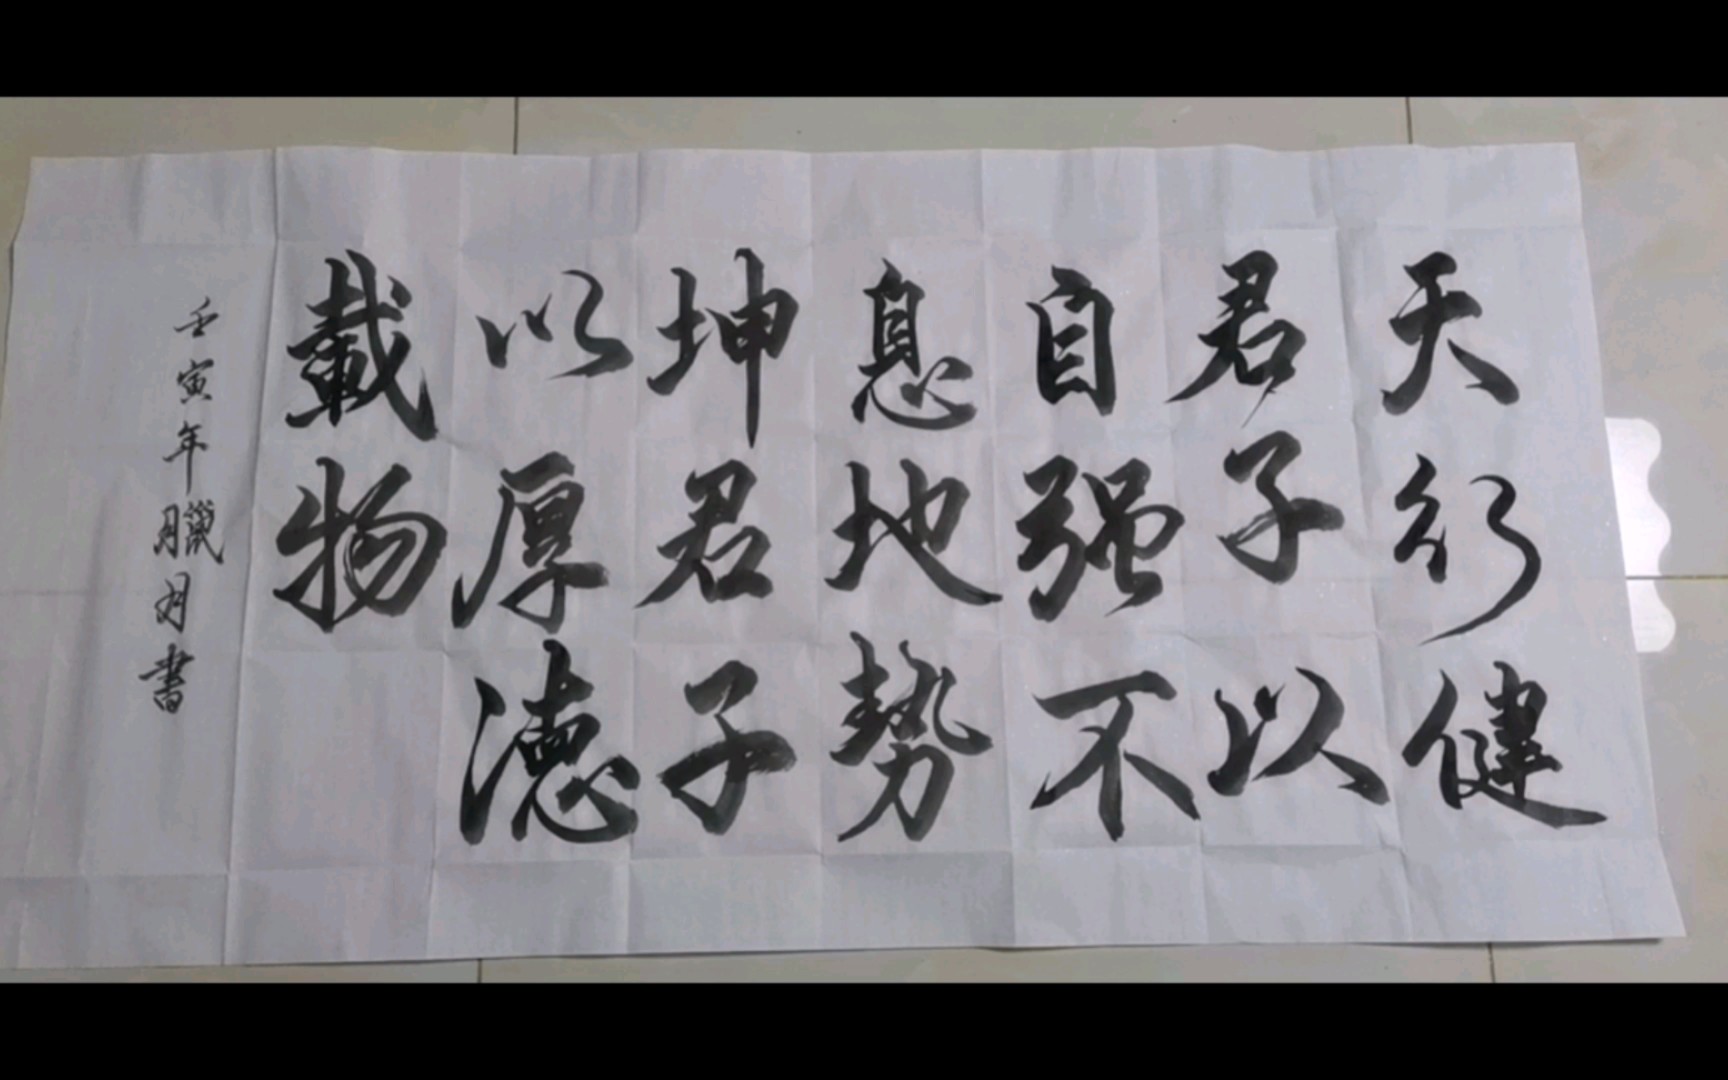 天行健
君子以
自强不
息地势
坤君子
以厚德
载物
壬寅年臘月書